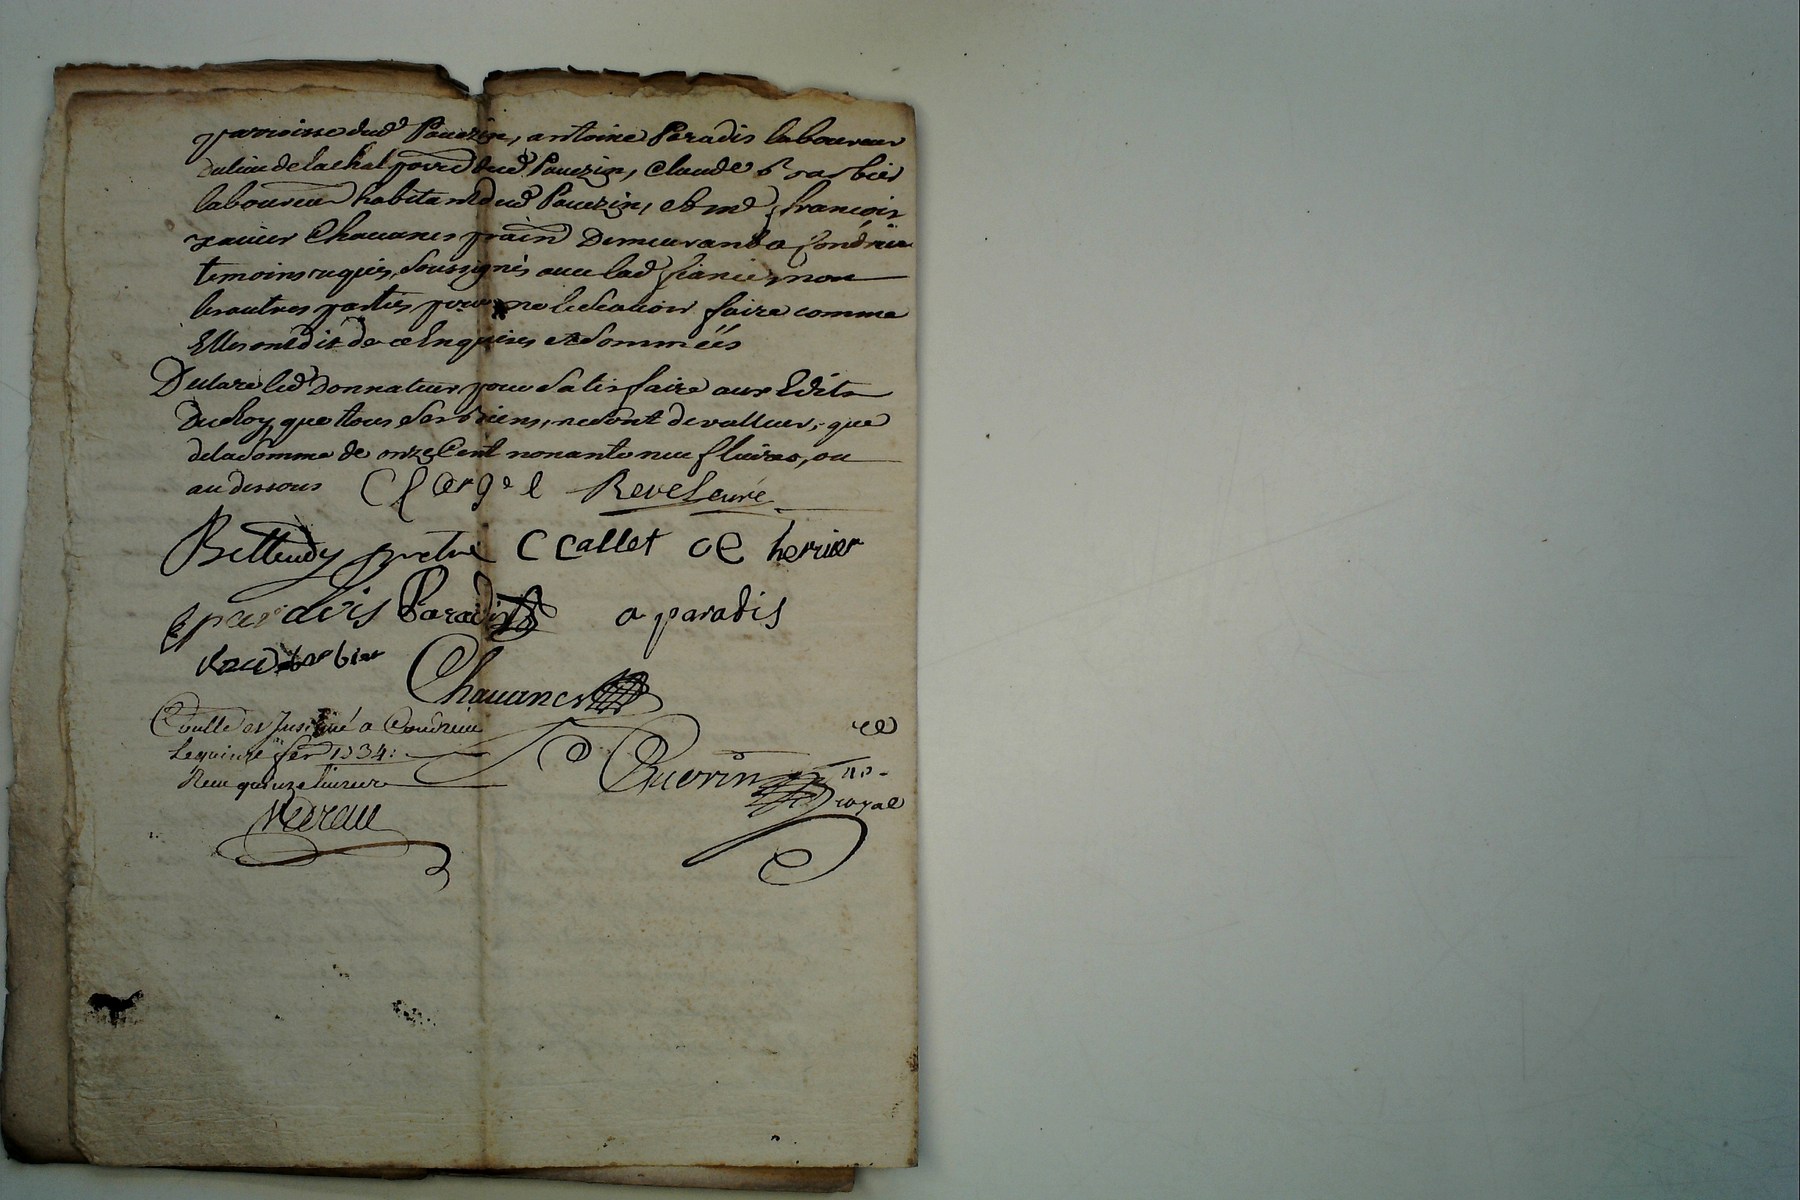 parroisse dud Pauezin, antoine Paradis laboureur
du lieu de lachal parr dud Pauezin, Claude Barbier
laboureur habitant dud Pauezin, et me françois
xauier Chauanes prain Demeurant a Condrieu
temoins requis, soussignés auec lad fiancée, non
les autres parties pour ne le scauoir faire comme
Elles ont dit de ce Enquises et sommées
Declare led Donnateur pour satisfaire aux Edits
Du Roy, que tous ses Biens, ne sont de valleur, que
de la somme de onze Cent nonante neuf liures, ou
au dessous C Reueleure
Bettendy pretre C Callet C herrier
paradis Paradis a paradis
barbier
Chauanes
Controllé et Insinué a Condrieu
Le quinze fer 1734:
Receu quinze liures
Guerin
no.
royal